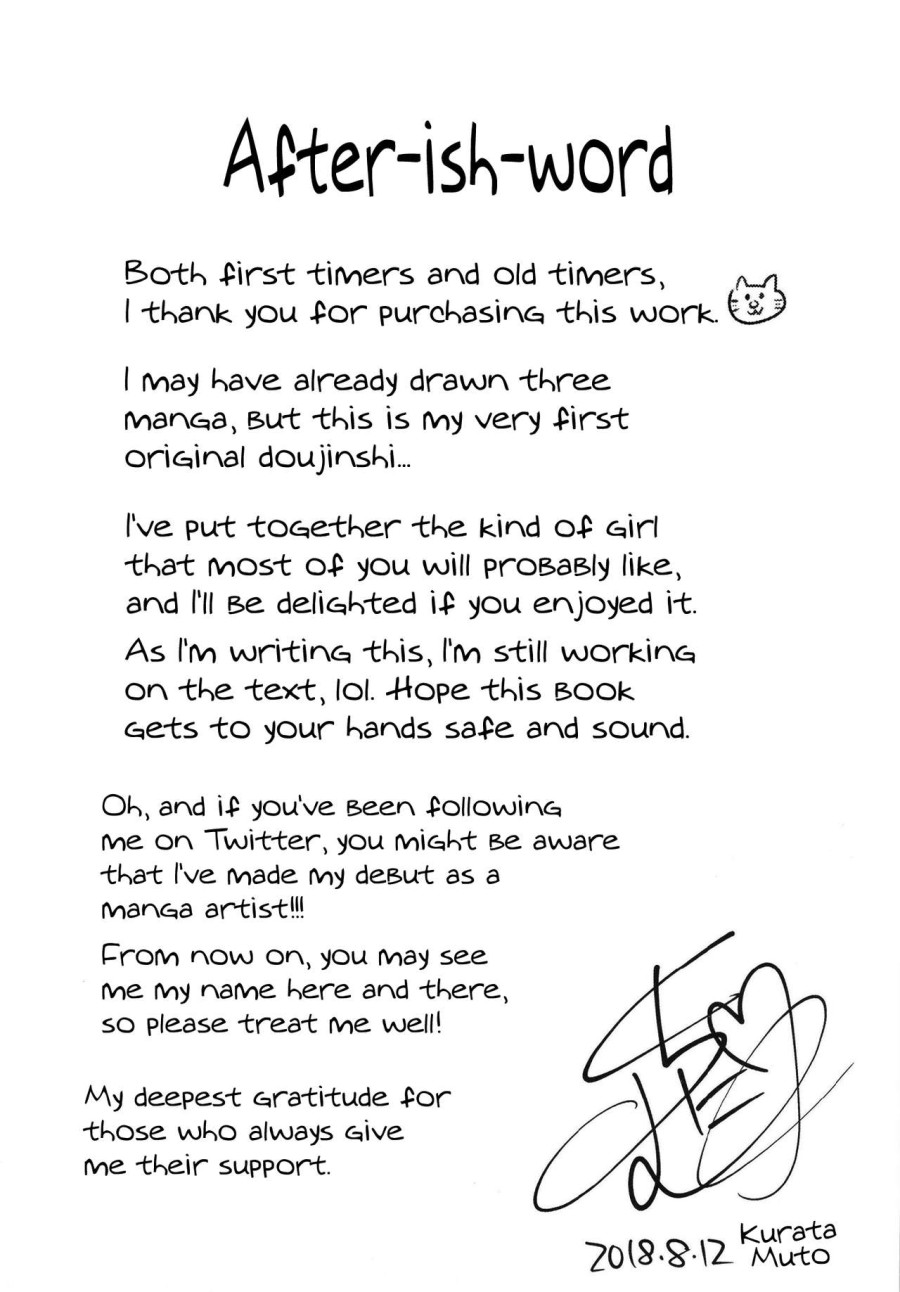 After-ish-word
Both first timers and old timers,
I thank you for purchasing this work.
I may have already drawn three
manga, but this is my very first
original doujinshi...
I've put together the kind of girl
that most of you will probably like,
and I'll be delighted if you enjoyed it.
As I'm writing this, I'm still working
on the text, lol. Hope this book
gets to your hands safe and sound.
Oh, and if you've been following
me on Twitter, you might be aware
that I've made my debut as a
manga artist!!!
From now on, you may see
me my name here and there,
so please treat me well!
My deepest gratitude for
those who always give
me their support.
2018.8.12
Kurata
Muto